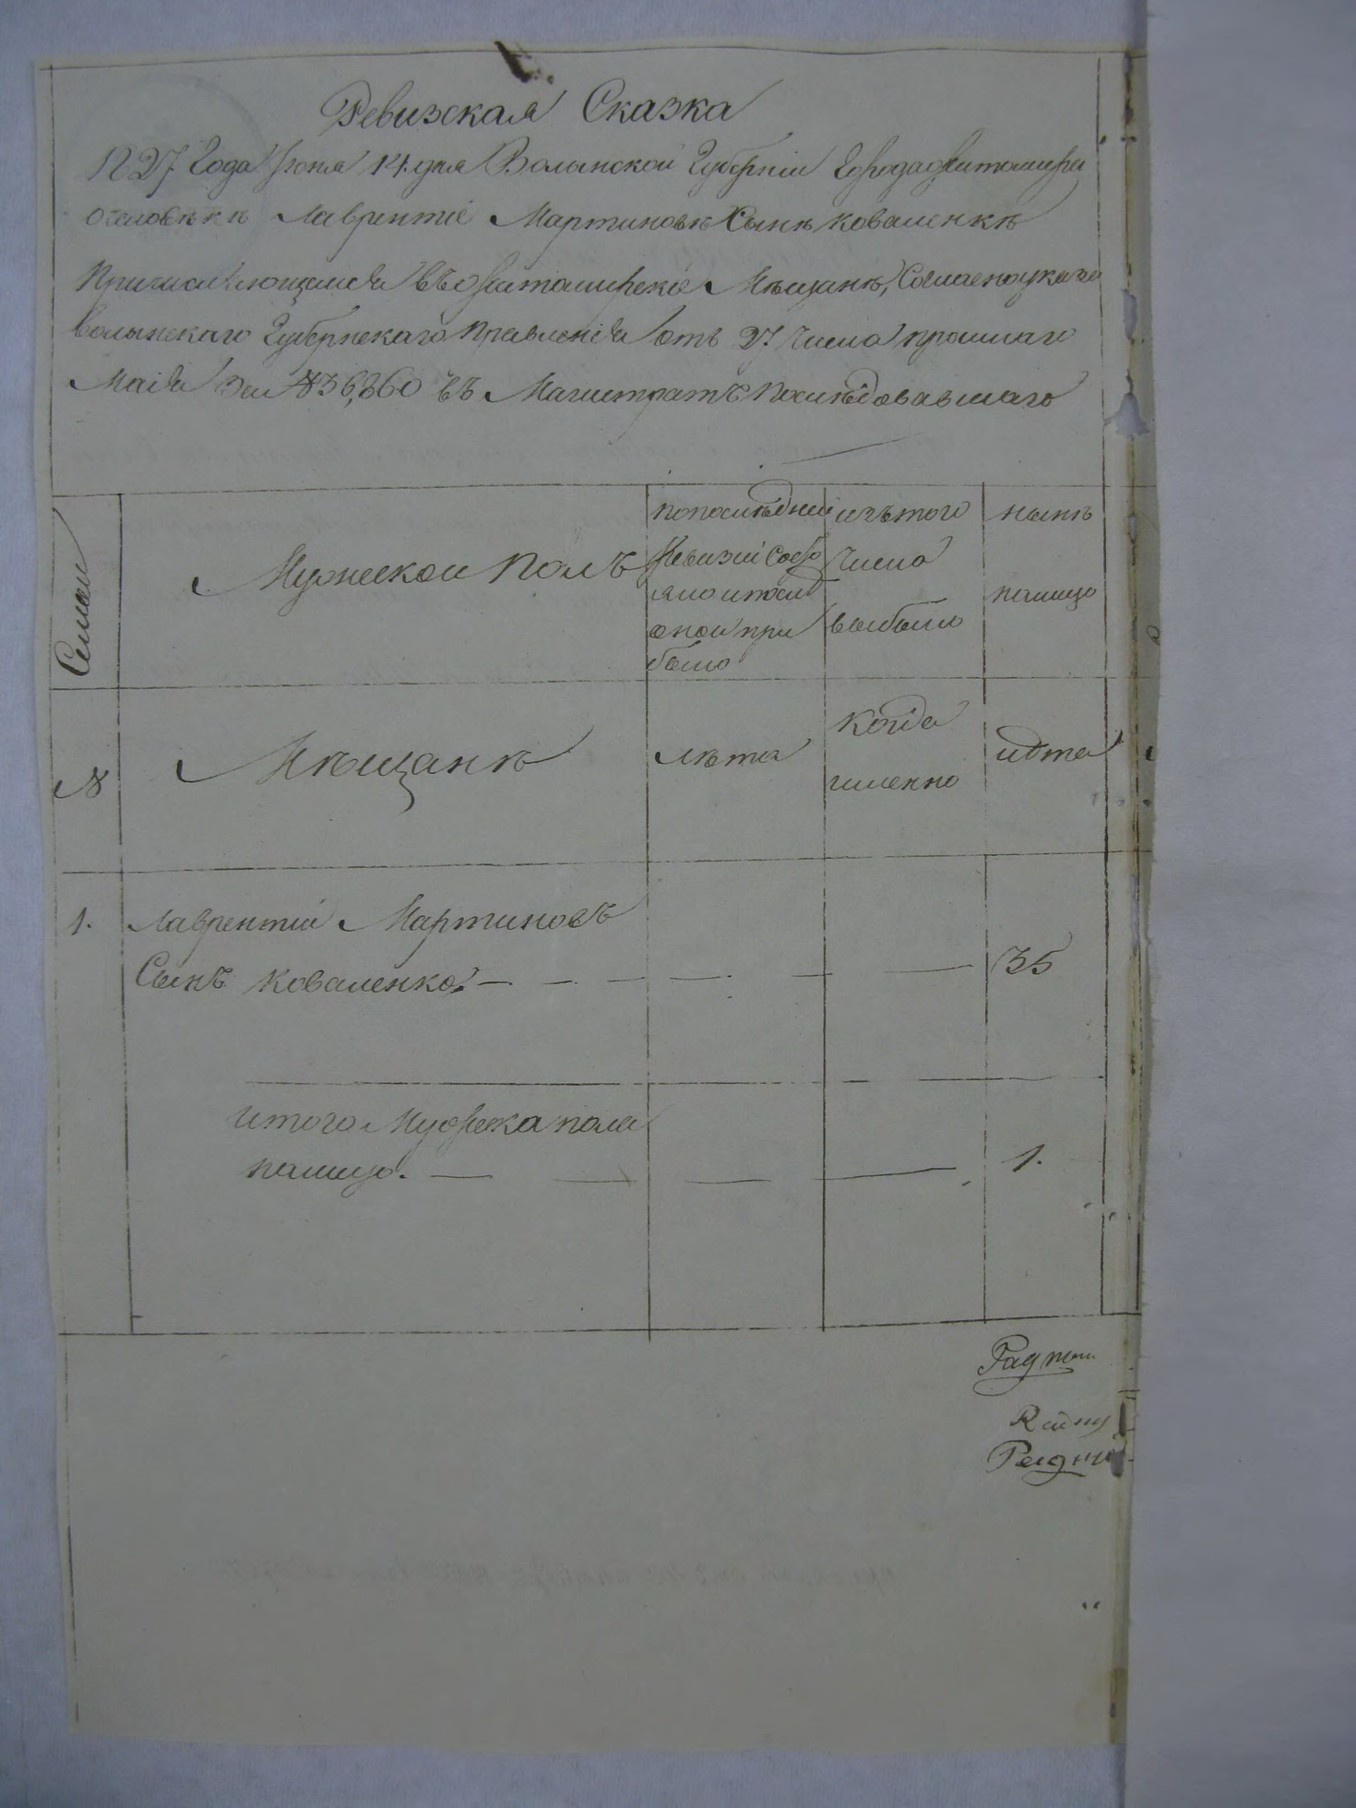 Ревизская Сказка
1827 Года Іюня 14 дня Волынской Губерніи Города Житомира
о человѣкѣ Лаврентіѣ Мартиновѣ Сынѣ Коваленкѣ
Причисляющемся въ Житомирскіе Мѣщанѣ, Согласно указа
Волынскаго Губернскаго Правленія отъ 27. Числа прошлаго
Маія За № 36,360 въ Магистратъ Послѣдовавшаго
Семьи
Мужескои Полъ
попослѣдней
Ревизіи состо
яло и посля
оной при
было
изътого
Числа
выбыло
нынѣ
налицо
№
Мѣщанѣ
лѣта
Когда
именно
лѣта
1.
Лаврентіи Мартиновъ
Сынъ Коваленко.
35
итого Мужеска пола
налицо.
1.